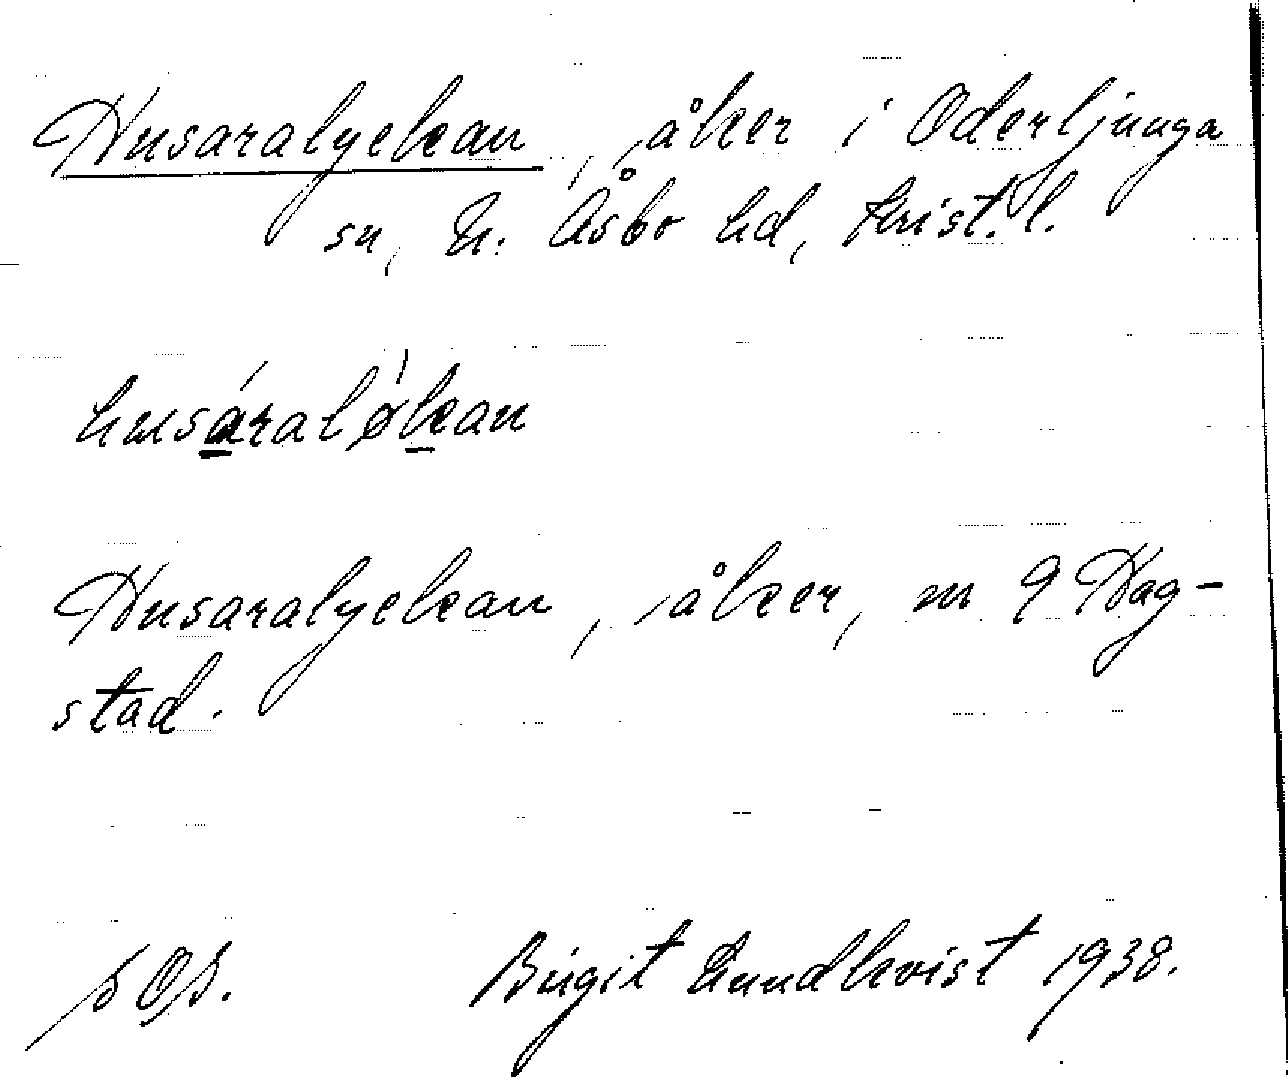 Husaralyckan, åker i Oderljunga
sn, N. Åsbo hd, Krist. l.
husáraløkan
Husaralyckan, åker, nr 9 Hag-
stad.
SOS. Birgit Lundkvist 1938.